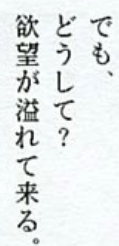 でも、
どうして？
欲望が溢れて来る。